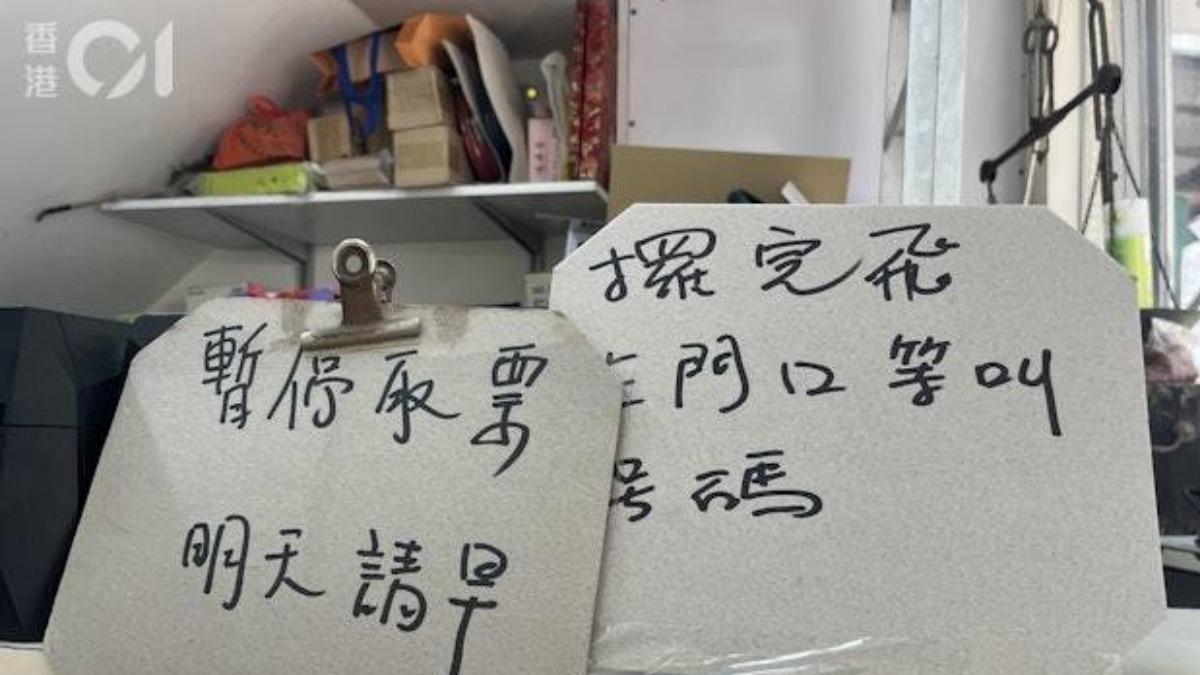 香港01
暫停取票
明天請早
攞完飛
在門口等叫
号碼